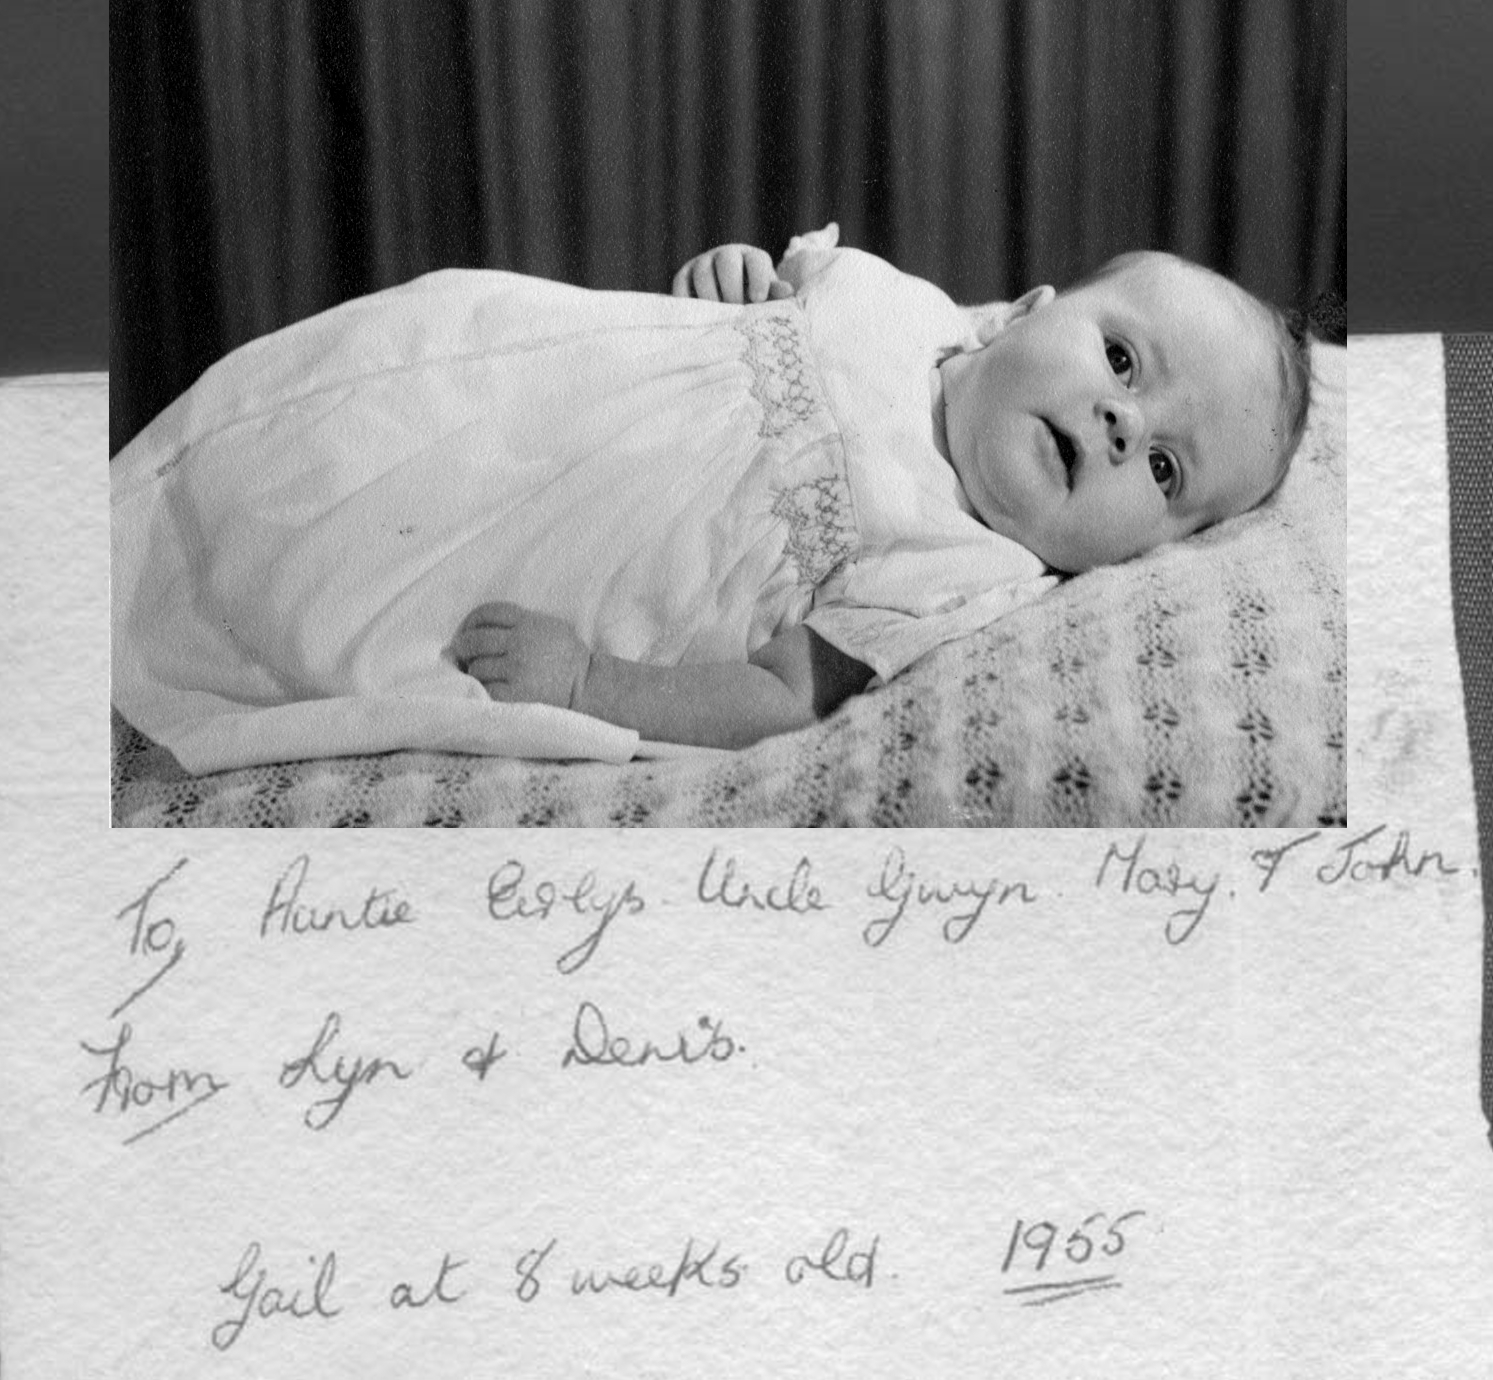 To, Auntie Eirlys. Uncle Gwyn. Mary. & John.
From Lyn & Denis.
Gail at 8 weeks old. 1955